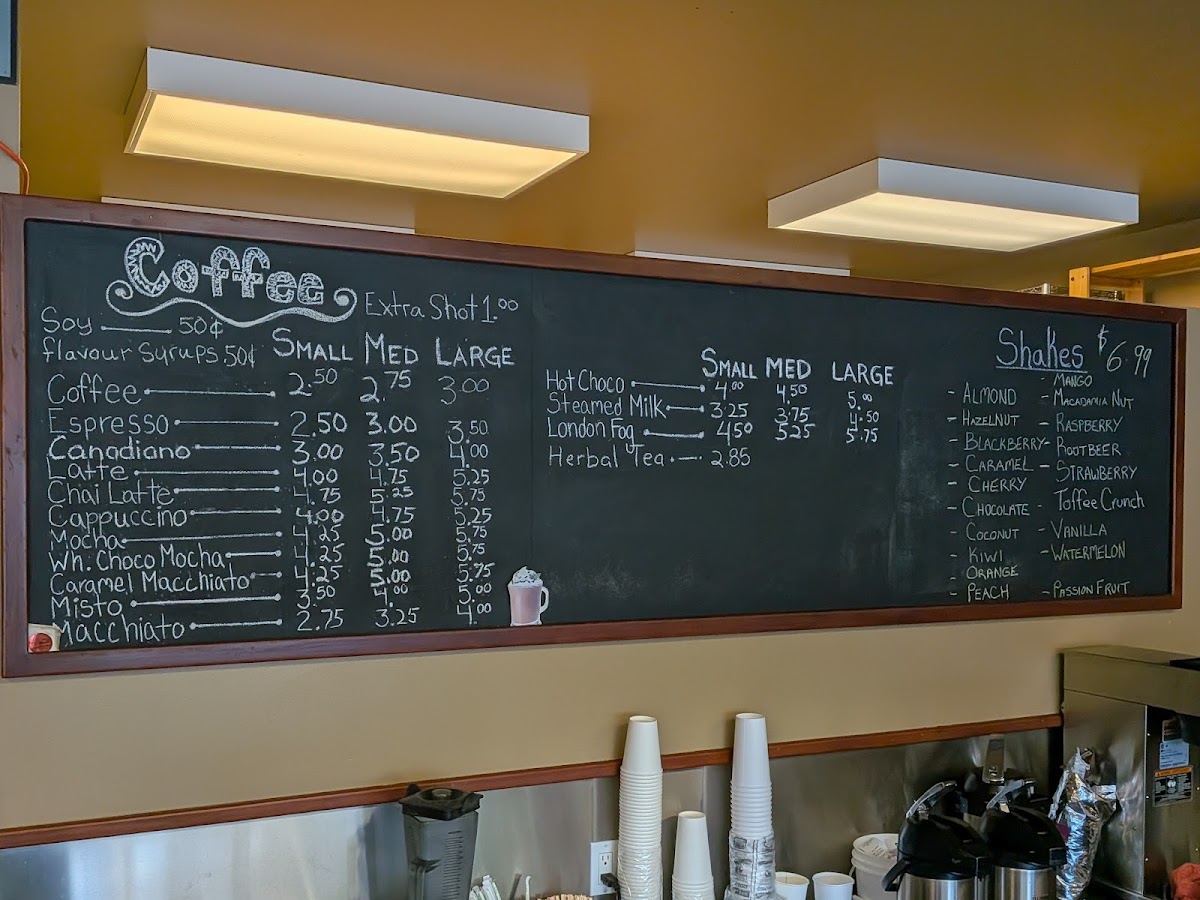 Coffee
Extra Shot 1.00
Soy 50¢
flavour Syrups .50¢
SMALL MED LARGE
Coffee 2.50 2.75 3.00
Espresso 2.50 3.00 3.50
Canadiano 3.00 3.50 4.00
Latte 4.00 4.75 5.25
Chai Latte 4.75 5.25 5.75
Cappuccino 4.00 4.75 5.25
Mocha 4.25 5.00 5.75
Wh. Choco Mocha 4.25 5.00 5.75
Caramel Macchiato 4.25 5.00 5.75
Misto 3.50 4.00 5.00
Macchiato 2.75 3.25 4.00
SMALL MED LARGE
Hot Choco 4.00 4.50 5.00
Steamed Milk 3.25 3.75 4.50
London Fog 4.50 5.25 5.75
Herbal Tea 2.85
Shakes $6.99
- ALMOND
- HAZELNUT
- BLACKBERRY
- CARAMEL
- CHERRY
- CHOCOLATE
- COCONUT
- KIWI
- ORANGE
- PEACH
- MANGO
- MACADAMIA NUT
- RASPBERRY
- ROOTBEER
- STRAWBERRY
- Toffee Crunch
- VANILLA
- WATERMELON
- PASSION FRUIT